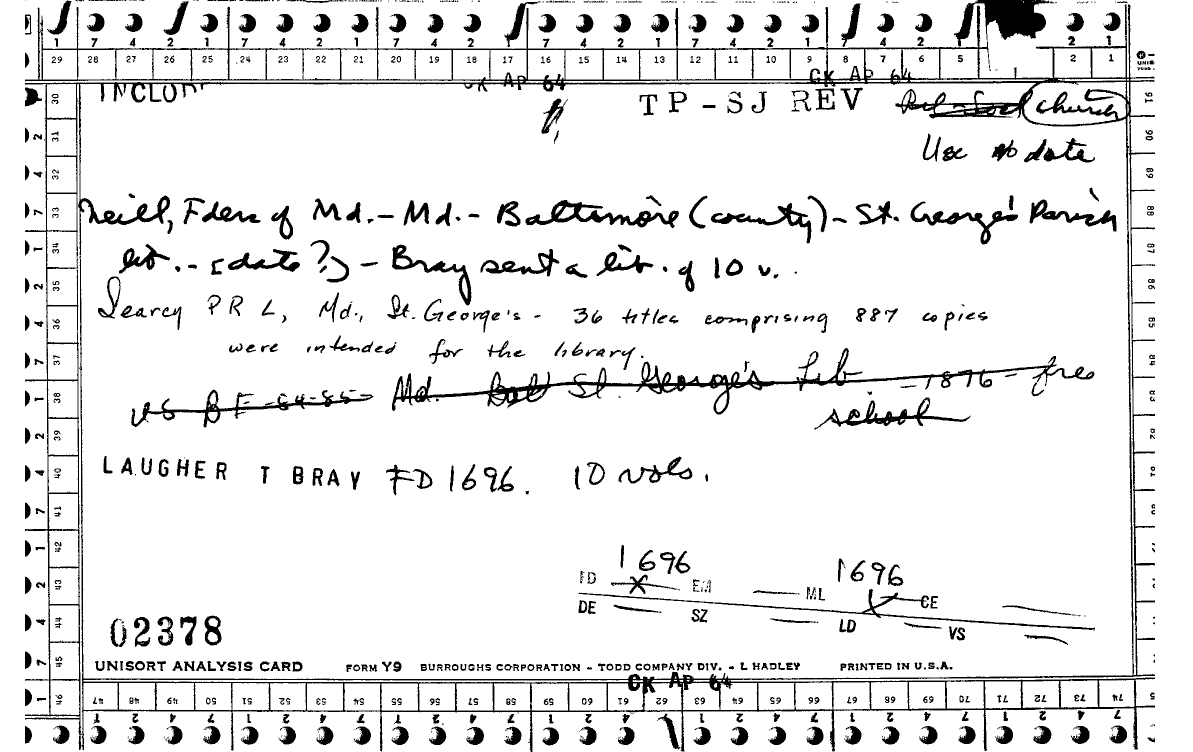 1 7 4 2 1 7 4 2 1 7 4 2 1 7 4 2 1 7 4 2 1 7 4 2 1 2 1
29 28 27 26 25 24 23 22 21 20 19 18 17 16 15 14 13 12 11 10 9 8 7 6 5 1 2 1
CK AP 64 CK AP 64
INCLUD
TP-SJ REV church
Use no date
Neill, Fders of Md. - Md. - Baltimore (county) - St. George's Parish
lib. - [date?] - Bray sent a lib. of 10 v.
Searcy PRL, Md., St. George's - 36 titles comprising 887 copies
were intended for the library.
US BE-64-85- Md. Balt St. George's Lib - 1896 - free
school
LAUGHER T BRAY FD 1696. 10 vols.
1696 1696
FD X EM ML CE
DE SZ LD VS
02378
UNISORT ANALYSIS CARD FORM Y9 BURROUGHS CORPORATION - TODD COMPANY DIV. - L HADLEY PRINTED IN U.S.A.
CK AP 64
47 48 49 50 51 52 53 54 55 56 57 58 59 60 61 62 63 64 65 66 67 68 69 70 71 72 73 74